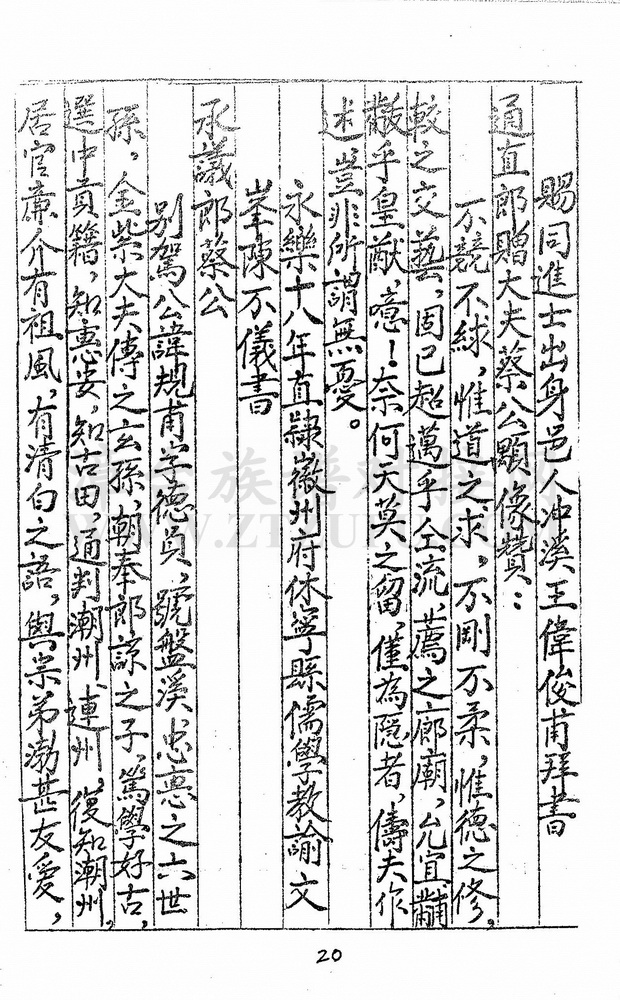 賜同進士出身邑人冲溪王偉俊甫拜書
通直郎贈大夫蔡公顒像贊：
不競不絿，惟道之求，不剛不柔，惟德之修。
較之交藝，固已超邁乎仝流，薦之廊廟，允宜黼
黻乎皇猷，噫！奈何天莫之留，僅為隱者，儔夫作
述豈非所謂無憂。
永樂十八年直隸徽州府休寧縣儒學教諭文
峯陳不儀書
承議郎蔡公
別駕公諱規甫字德員，號盤溪忠惠之六世
孫，金紫大夫傳之玄孫，朝奉郎諒之子，篤學好古，
選中貢籍，知惠安，知古田，通判潮州，連州。復知潮州。
居官廉介有祖風，有清白之語，與宗弟渤甚友愛，
20